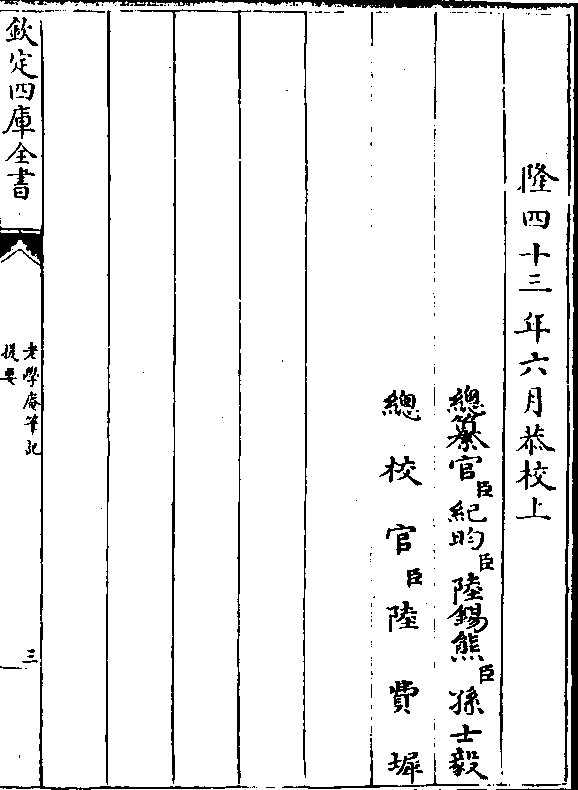 隆四十三年六月恭校上
總纂官臣紀昀臣陸錫熊臣孫士毅
總校官臣陸費墀
欽定四庫全書
老學庵筆記
提要
三